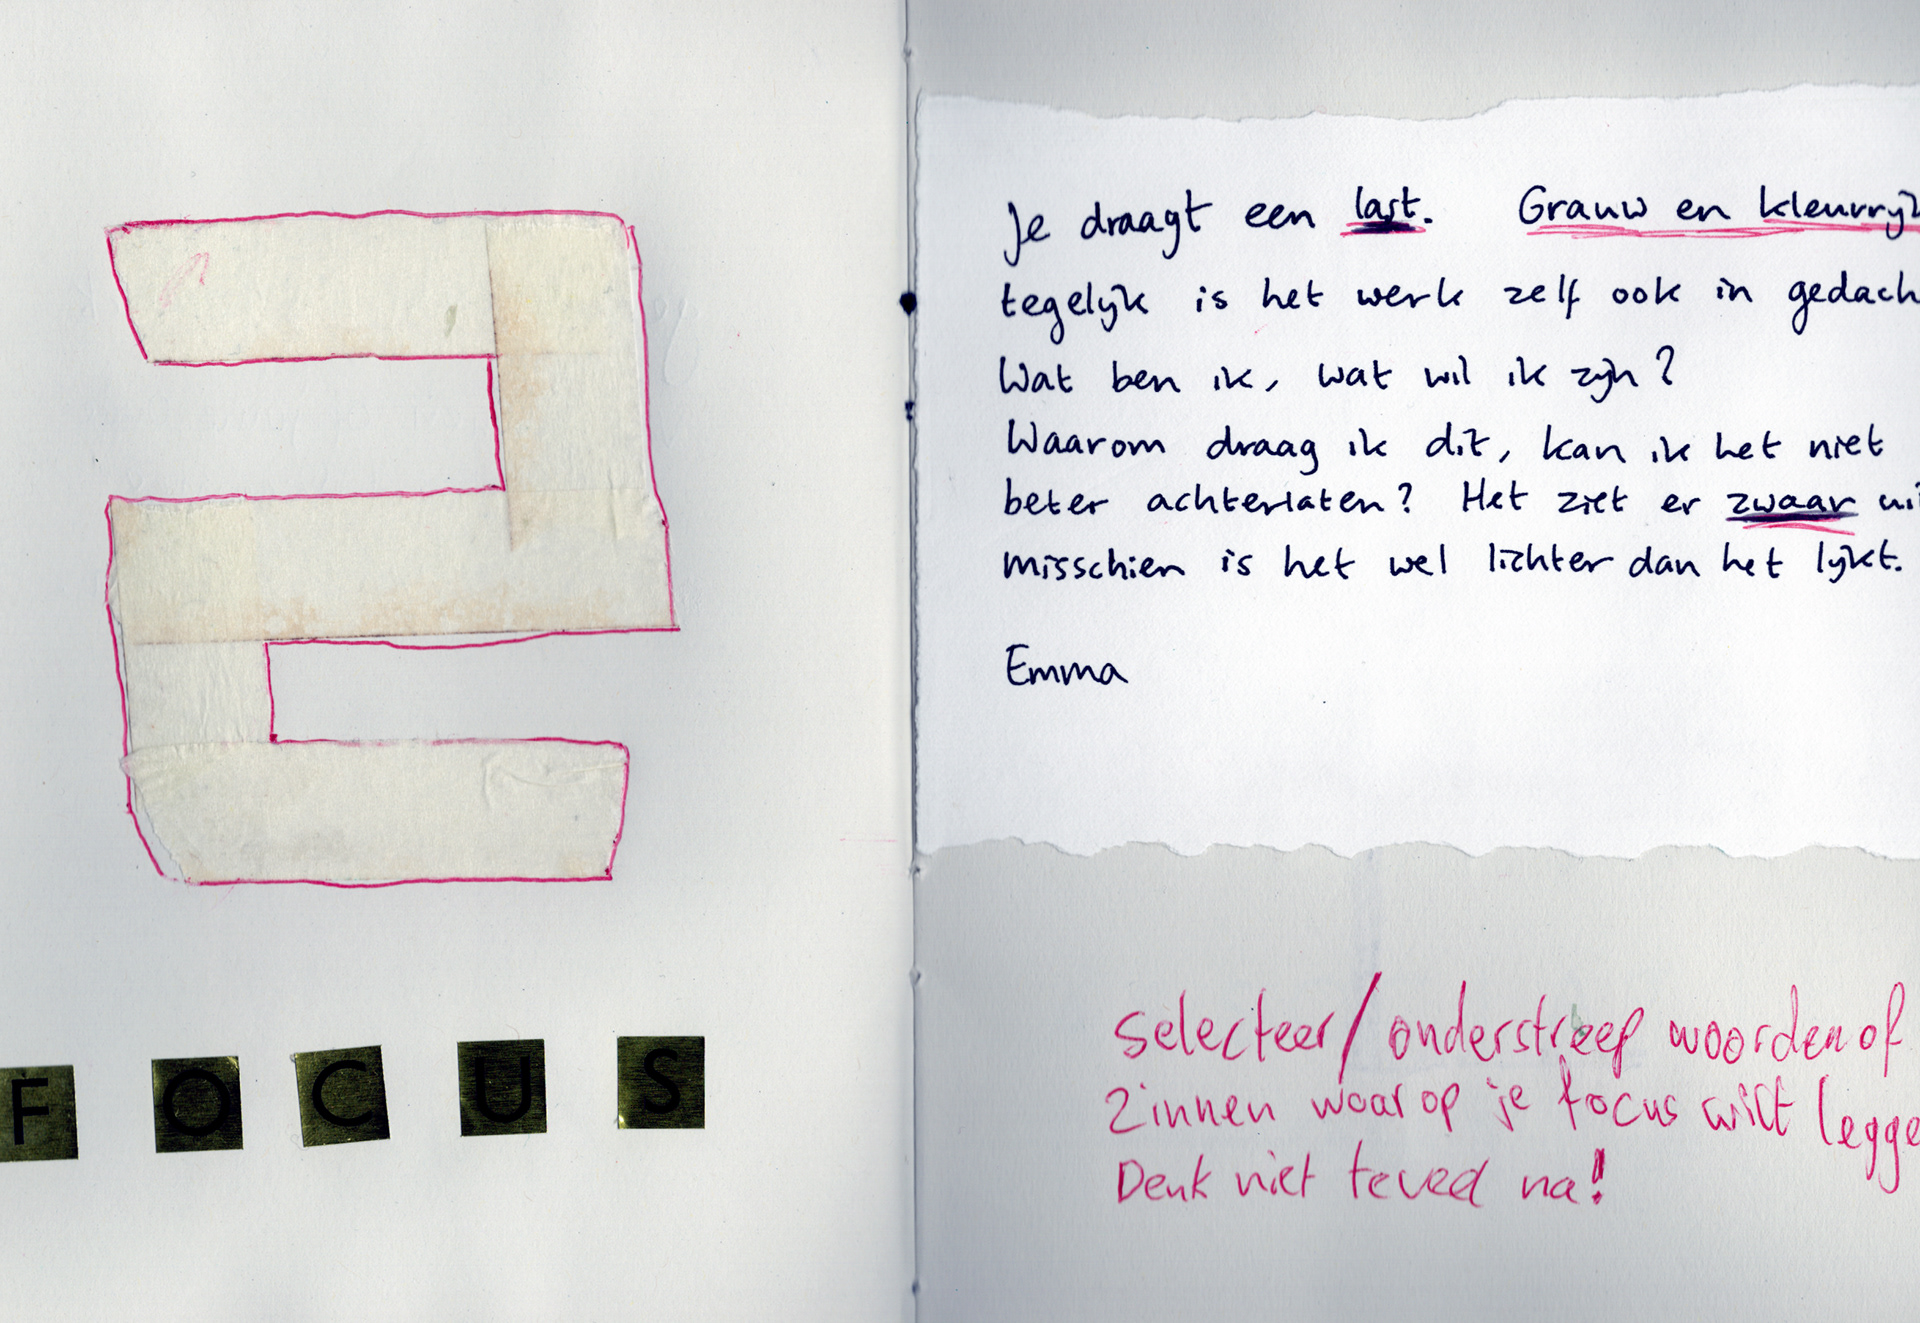 2
FOCUS
Je draagt een last. Grauw en kleurrijk
tegelijk is het werk zelf ook in gedach
Wat ben ik, wat wil ik zijn?
Waarom draag ik dit, kan ik het niet
beter achterlaten? Het ziet er zwaar ui
misschien is het wel lichter dan het lijkt.
Emma
Selecteer/onderstreep woorden of
Zinnen waarop je focus wilt legge
Denk niet teveel na!